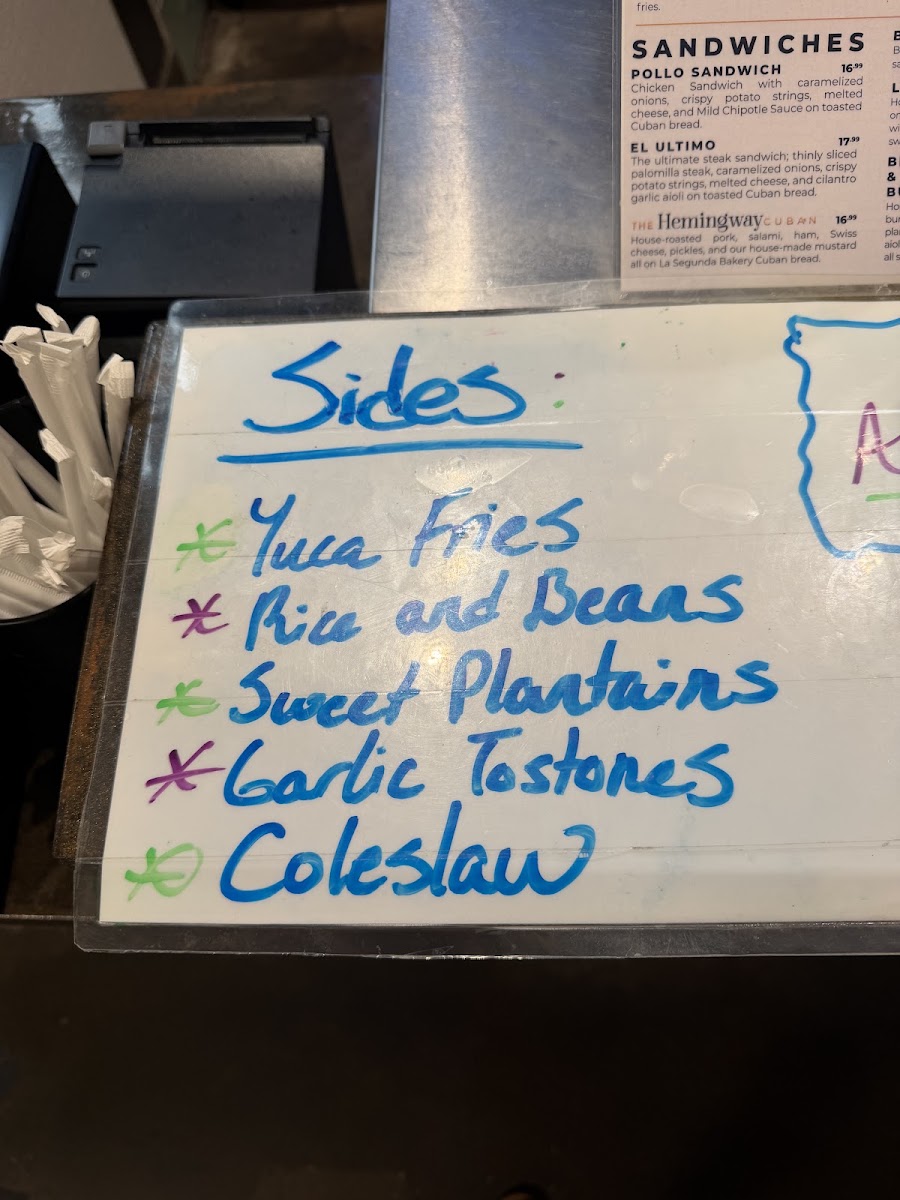 fries.
SANDWICHES
POLLO SANDWICH 16.99
Chicken Sandwich with caramelized
onions, crispy potato strings, melted
cheese, and Mild Chipotle Sauce on toasted
Cuban bread.
EL ULTIMO 17.99
The ultimate steak sandwich; thinly sliced
palomilla steak, caramelized onions, crispy
potato strings, melted cheese, and cilantro
garlic aioli on toasted Cuban bread.
THE Hemingway CUBAN 16.99
House-roasted pork, salami, ham, Swiss
cheese, pickles, and our house-made mustard
all on La Segunda Bakery Cuban bread.
Sides:
* Yuca Fries
* Rice and Beans
* Sweet Plantains
* Garlic Tostones
* Coleslaw